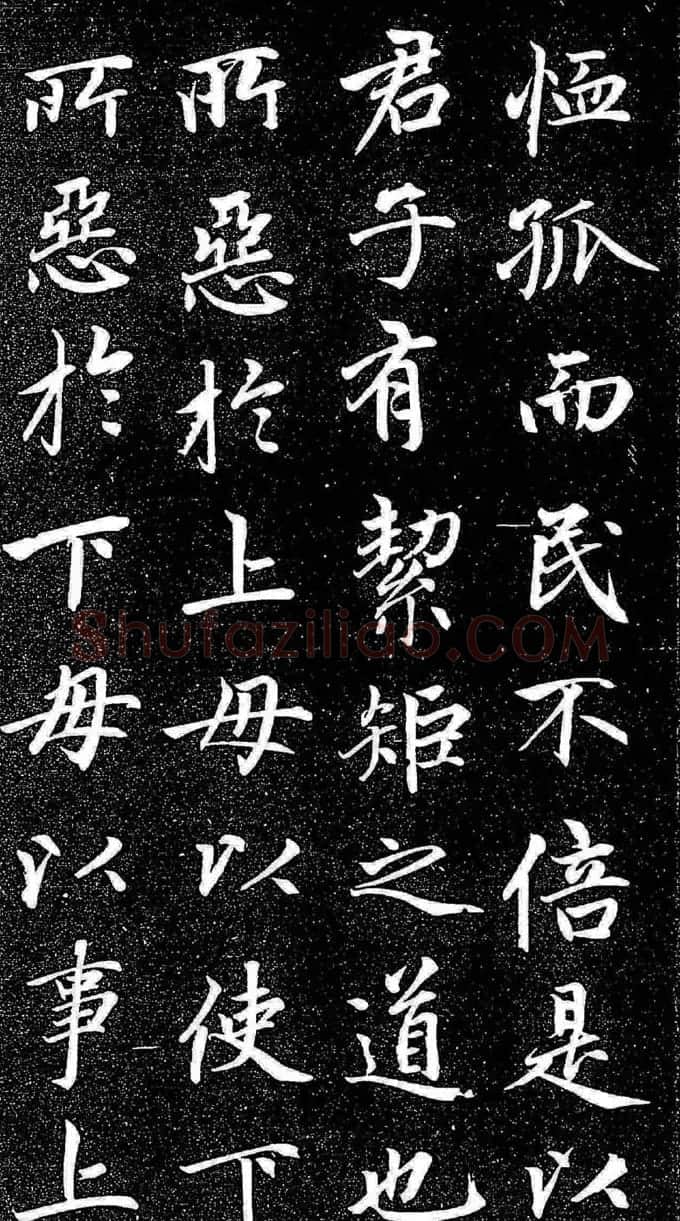 恤孤而民不倍是以
君子有絜矩之道也
所惡於上毋以使下
所惡於下毋以事上
Shufaziliao.COM